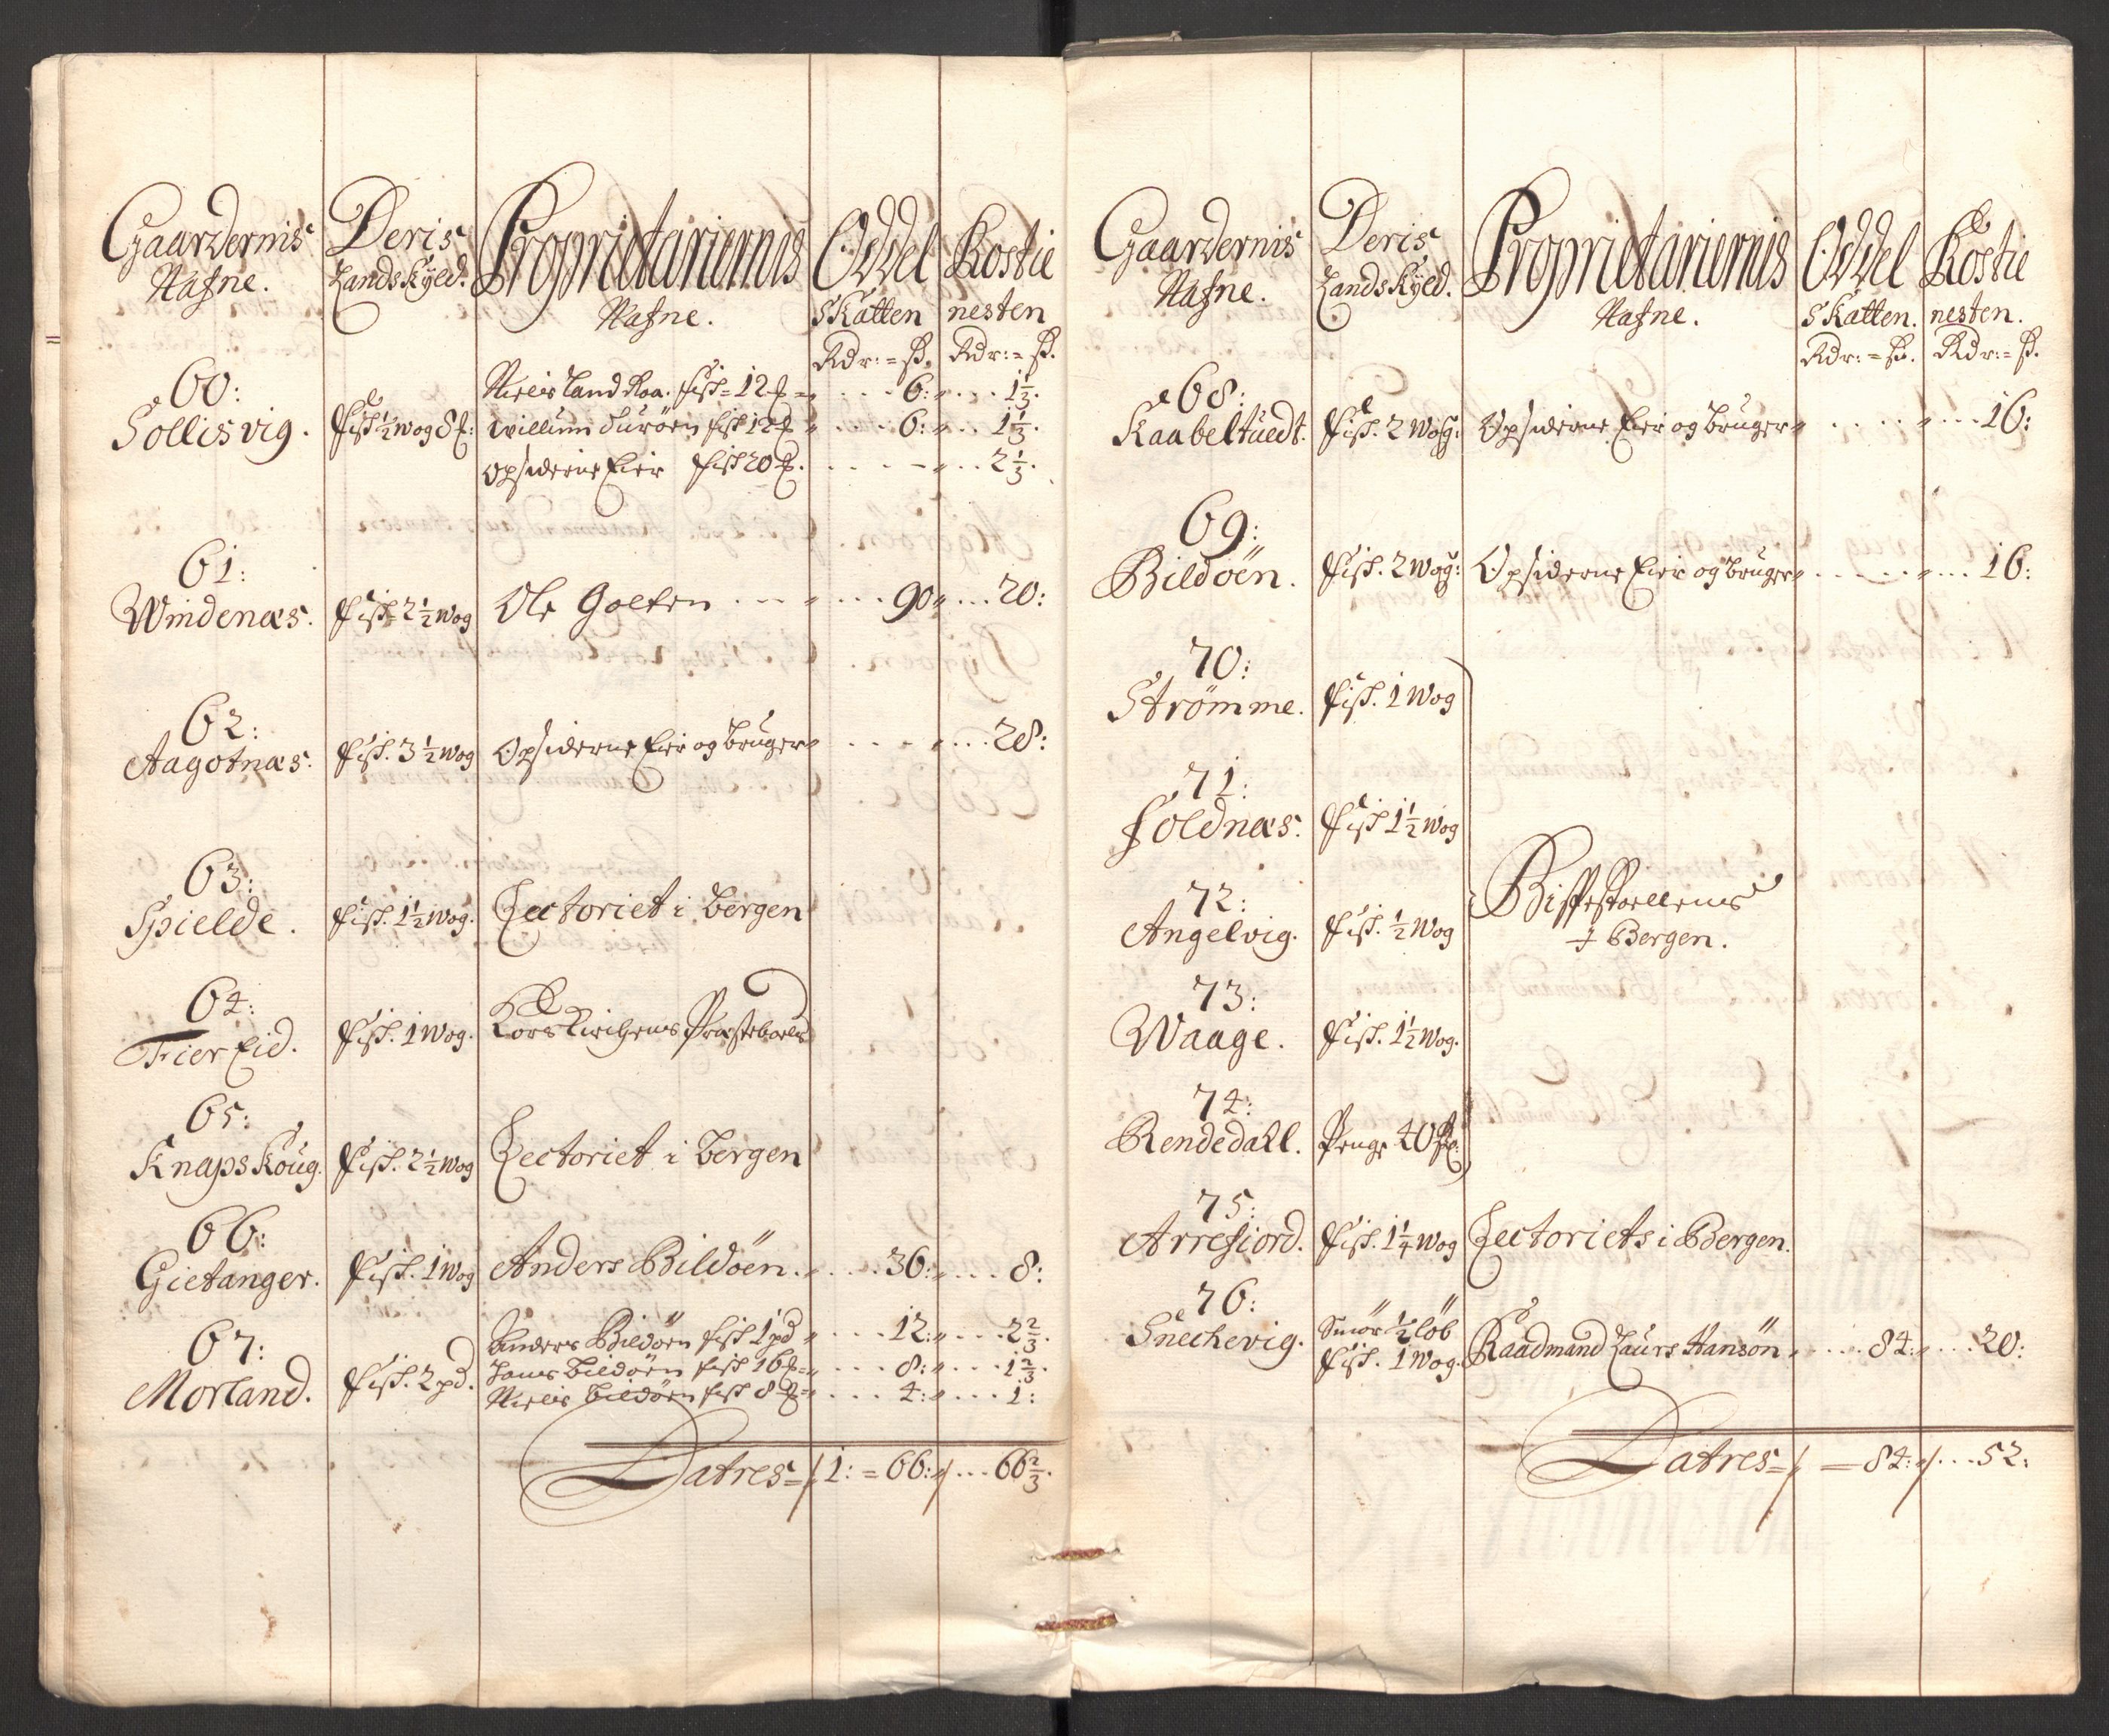 Gaardernis Nafne. | Deris Landskyld. | Proprietariernis Nafne. | Oddel Skatten Rdr: = ß. | Rostie nesten Rdr: = ß.
60: Sollisvig. | Fisk ½ wog 8 ℔: | Niels Landkoa. fisk = 12 ℔ = | 6: | 1⅓.
Willum Turöen fisk 12 ℔ | 6: | 1⅓.
Opsiderne Eier fisk 20 ℔. | - | 2⅓.
61: Windenæs. | Fisk 2½ wog | Ole Golten | 90 | 20:
62: Aagotnæs. | Fisk. 3½ wog | Opsiderne Eier og bruger | - | 28:
63: Spielde. | Fisk. 1½ wog. | Lectoriet i bergen
64: Trier Eid. | Fisk. 1 wog. | Kors Kirchens Præsteboel
65: Knapskoug. | Fisk. 2½ wog | Lectoriet i bergen
66: Gietanger. | Fisk. 1 wog | Anders Bildöen. | 36: | 8:
67: Morland. | Fisk. 2 pd. | Anders Bildöen fisk 1 pd | 12: | 2⅔.
Hans Bildöen fisk 16 ℔ = | 8: | 1⅔.
Niels bildöen fisk 8 ℔ = | 4: | 1:
Latres = | 1: = 66: | 66⅔.
Gaardernis Nafne. | Deris Landskyld. | Proprietariernis Nafne. | Oddel Skatten. Rdr: = ß. | Rostie nesten. Rdr: = ß.
68: Kaabeltuedt. | Fisk. 2 wog: | Opsiderne Eier og bruger | | 16:
69: Bildöen. | Fisk. 2 wog: | Opsiderne Eier og bruger | | 16:
70: Strømme. | Fisk. 1 wog
71: Foldnæs. | Fisk 1½ wog
72: Angelvig. | Fisk. ½ wog | Bispestoellens
i Bergen.
73: Waage. | Fisk. 1½ wog.
74: Rendedall. | Penge 40 ß:
75: Arrefiord. | Fisk. 1¼ wog | Lectoriets i Bergen.
76: Snechevig. | Smör ½ löb
Fisk. 1 wog. | Raadmand Laurs Hansön | 84: | 20:
Latres = | = 84: | 52: